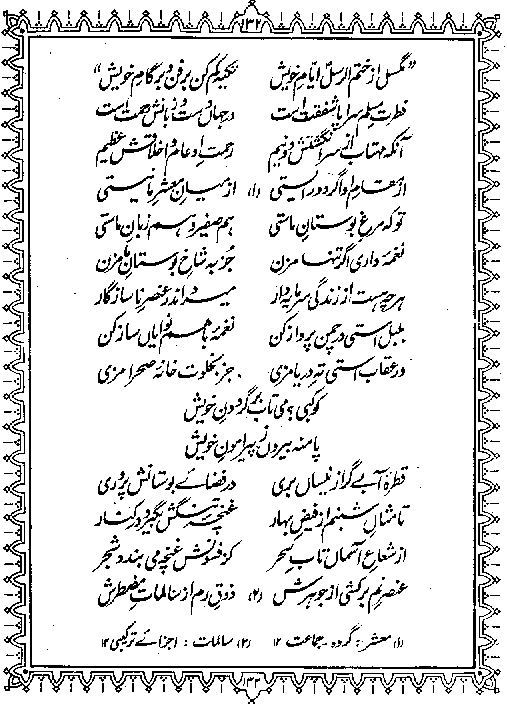 ۱۳۲
"مگسل از ختم الرسلؐ ایامِ خویش تکیہ کم کن بر فن و بر گامِ خویش"
فطرتِ مسلم سراپا شفقت است در جہاں دست و زبانش رحمت است
آنکہ مہتاب از سرِ انگشتش دونیم رحمتِ او عام و اخلاقش عظیم
از مقامِ او اگر دور ایستی (۱) از میانِ معشرِ ما نیستی
تو کہ مرغِ بوستانِ ماستی ہم صفیر و ہم زبانِ ماستی
نغمۂ داری اگر تنہا مزن جز بہ شاخِ بوستانِ ما مزن
ہر چہ ہست از زندگی سرمایہ دار میرد اندر عنصرِ ناسازگار
بلبل استی در چمن پرواز کن نغمۂ با ہم نوایاں ساز کن
ور عقاب استی تہِ دریا مزی جز بخلوت خانۂ صحرا مزی
کوکبی؟ می تاب بر گردونِ خویش
پا منہ بیروں ز پیرامونِ خویش
قطرۂ آبے گر از نیساں بری در فضائے بوستانش پروری
تا مثالِ شبنم از فیضِ بہار غنچۂ تنگش بگیرد در کنار
از شعاعِ آسماں تابِ سحر کز فسونش غنچہ می بندد شجر
عنصرِ نم بر کشی از جوہرش (۲) ذوقِ رم از سالماتِ مضطرش
(۱) معشر: گروہ۔ جماعت ۱۲ (۲) سالمات: اجزائے ترکیبی ۱۲
۱۳۲